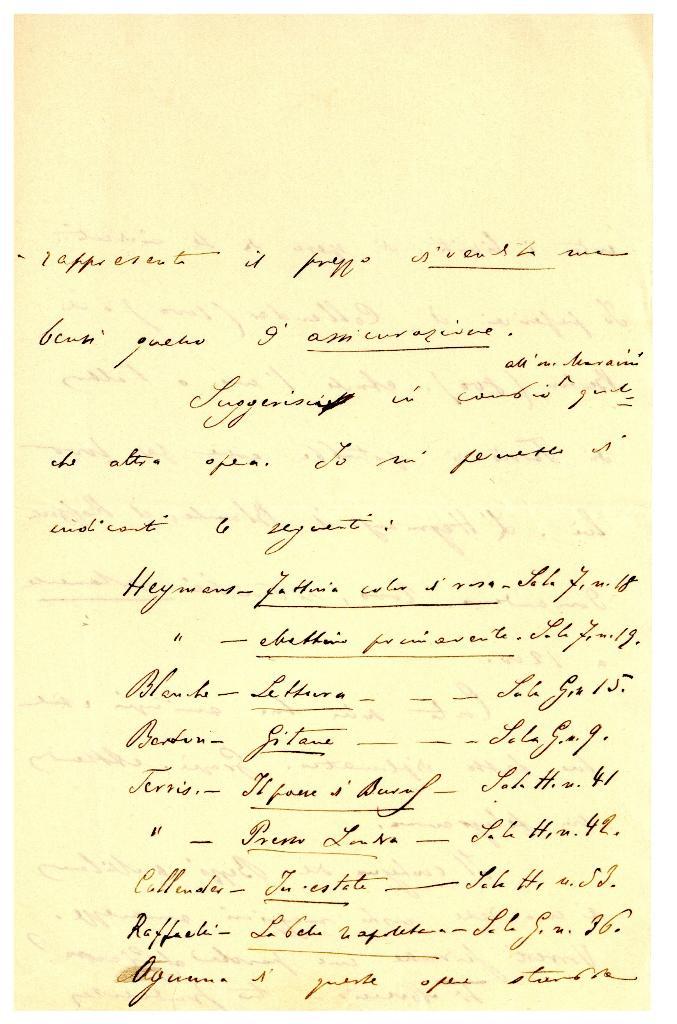 rappresenta il prezzo di vendita ma
bensì quello d'assicurazione.
all'on. Maraini
Suggerisci in cambio qual=
che altra opera. Io mi permetto di
indicarti le seguenti:
Heymans – Fattoria color di rosa – Sala F, n. 18
" – Mattino primaverile. Sala F, n. 19.
Blanche – Lettura – – – Sala G, n 15.
Berton – Gitane – – – Sala G. n. 9.
Terris. – Il paese di – Sala H. n. 41
" – Presso Londra – Sala H, n. 42.
Callender – In estate – Sala H, n. 53.
Raffaelli – La bella napoletana – Sala G. n. 36.
Ognuna di queste opere